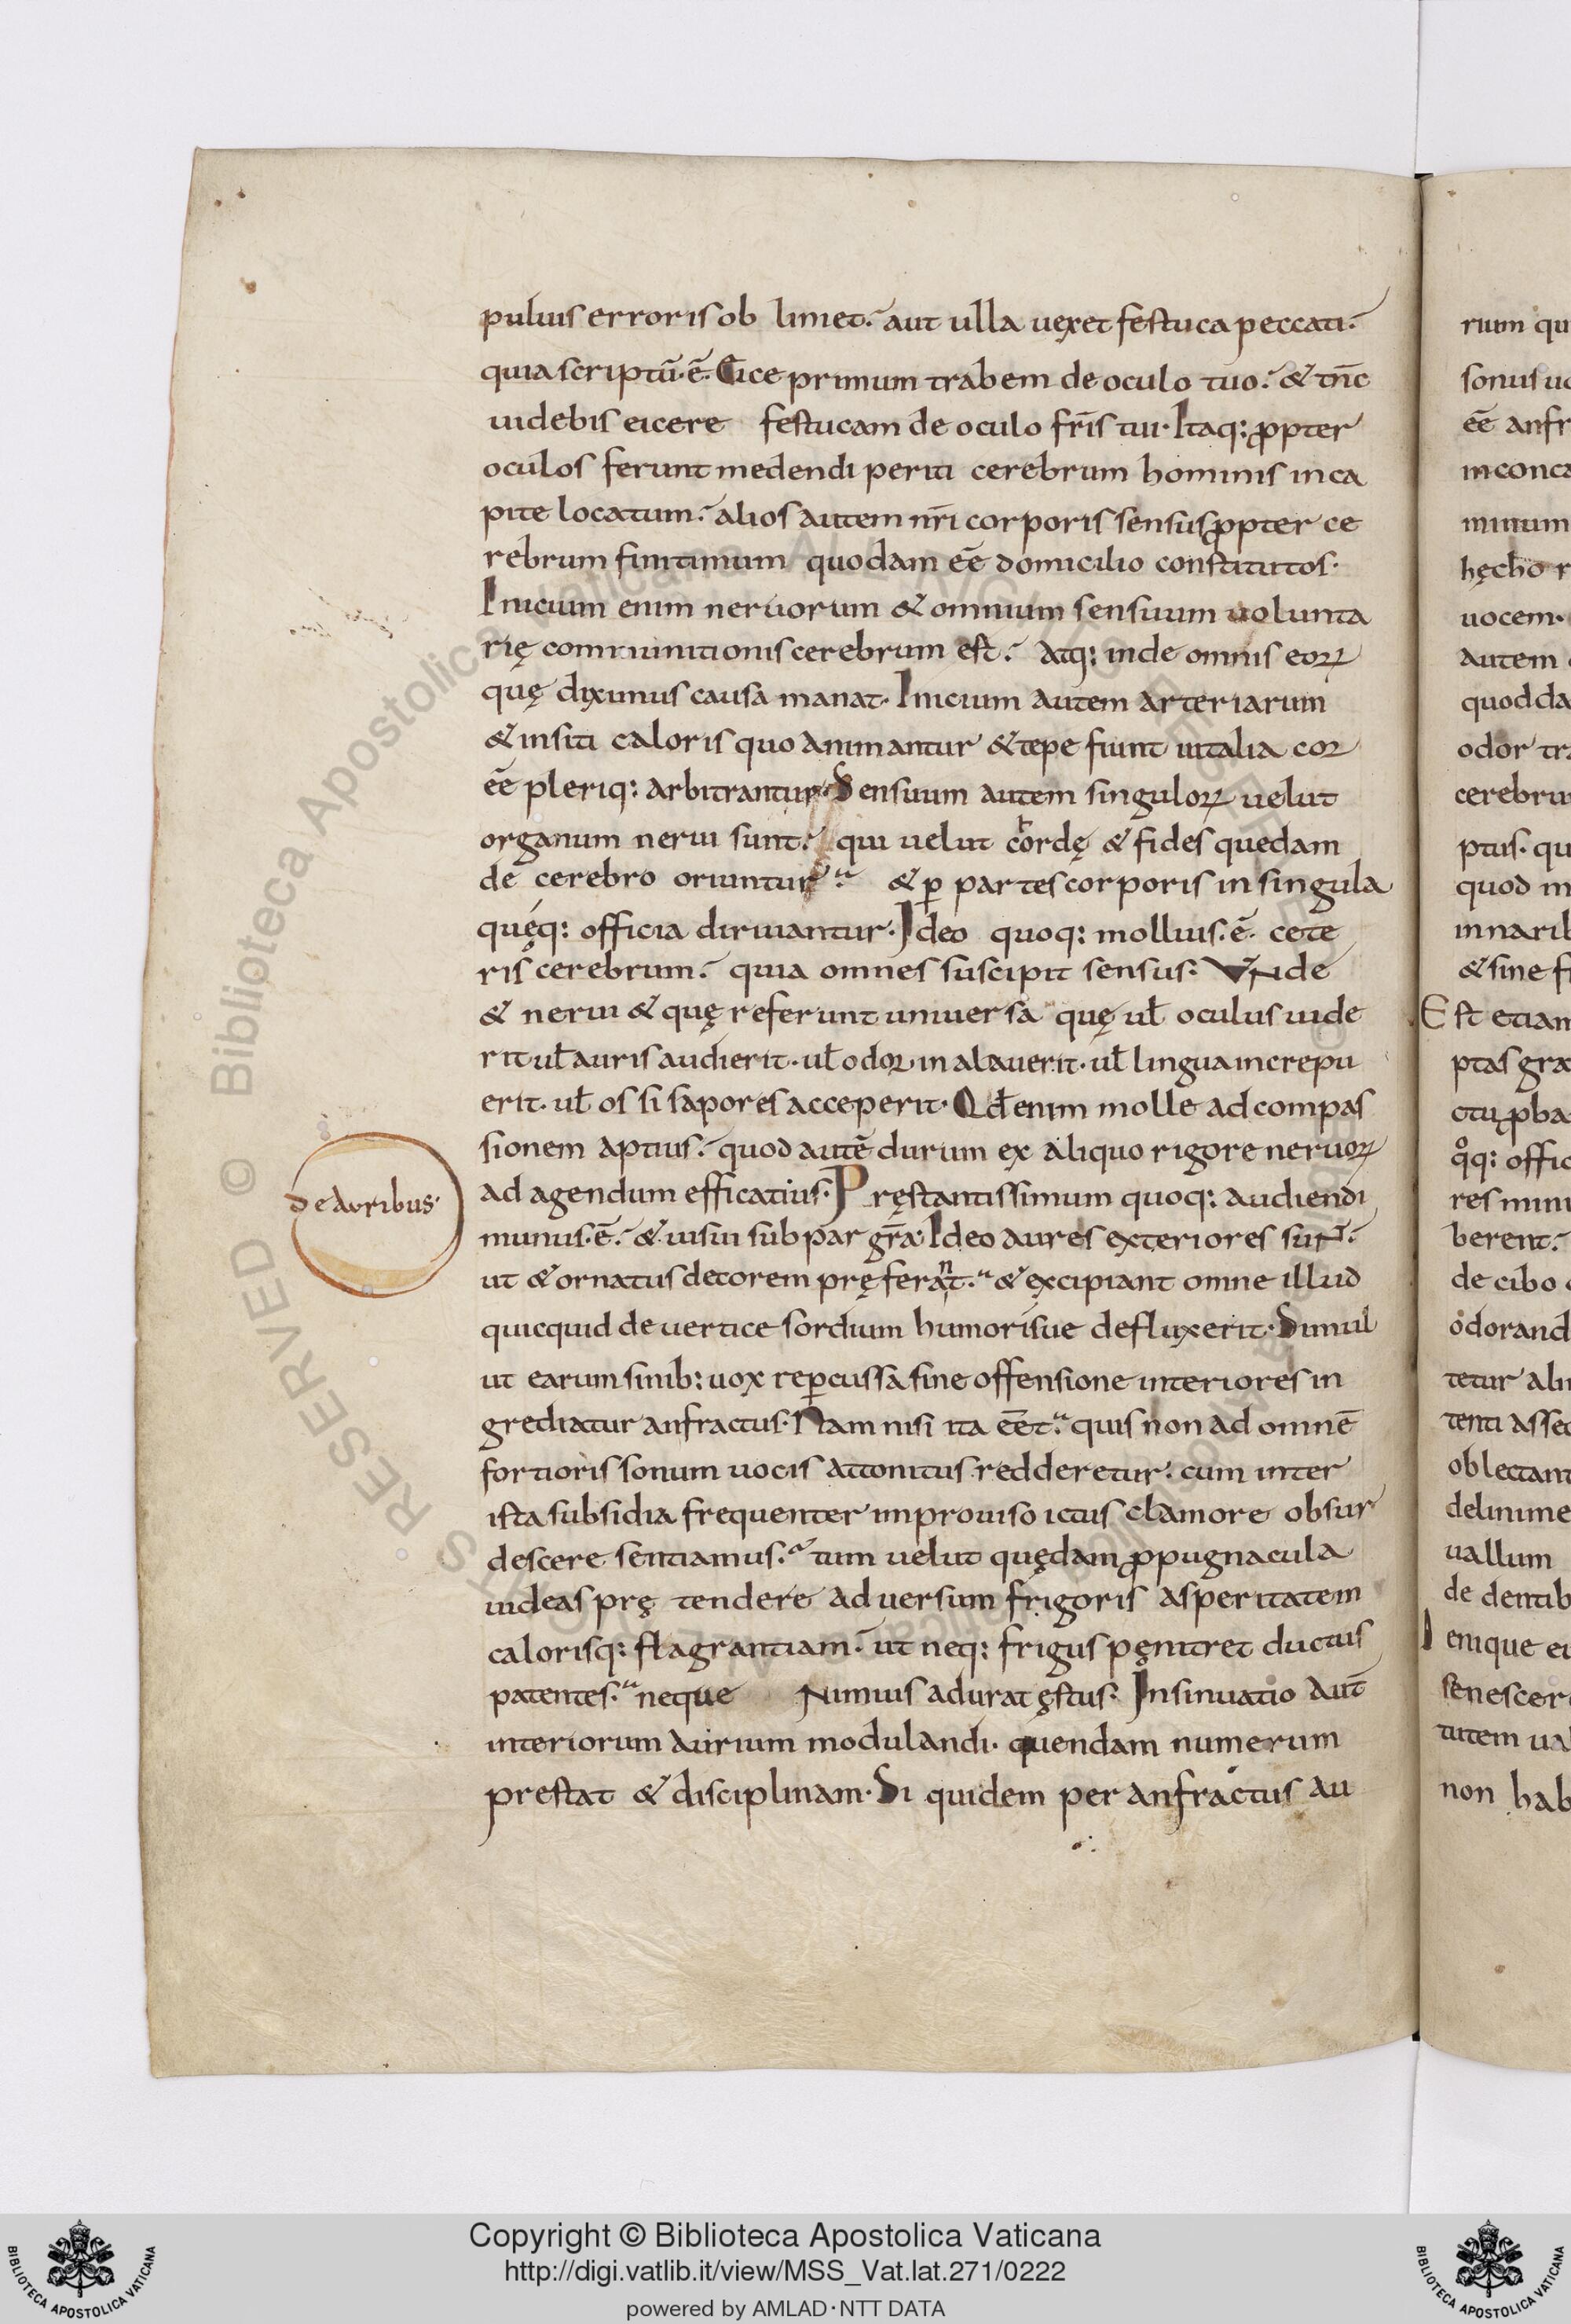 puluis erroris ob limet. aut ulla uexet festuca peccati.
quia scriptũ. ẽ. Eice primum trabem de oculo tuo. & tñc
uidebis eicere festucam de oculo fr̃is tui. Itaq: ꝓpter
oculos ferunt medendi periti cerebrum hominis in ca
pite locatum. alios autem nr̃i corporis sensus ꝓpter ce
rebrum finitimum quodam eẽ domicilio constitutos.
Inicium enim neruorum & omnium sensuum uolunta
rię cerebrum est. Atq: inde omnis eoꝝ
quę diximus causa manat. Inicium autem arteriarum
& insiti caloris quo animantur & tepe fiunt uitalia cor
eẽ pleriq: arbitrantur. Sensuum autem singuloꝝ uelut
organum nerui sunt. qui uelut cordę & fides quedam
de cerebro oriuntur. & ꝑ partes corporis in singula
quęq: officia diriuantur. Ideo quoq: mollius. ẽ. cete
ris cerebrum. quia omnes suscipit sensus. Vnde
& nerui & quę referunt uniuersa quę uł oculus uide
rit uł auris audierit. uł odor inalauerit. uł lingua increpu
erit. uł os si sapores acceperit. Qđ enim molle ad compas
sionem aptius. quod autẽ durum ex aliquo rigore neruoꝝ
De auribus.
ad agendum efficatius. Pręstantissimum quoq: audiendi
munus. ẽ. & uisui subpar gr̃a. Ideo aures exteriores sunt.
ut & ornatus decorem pręferant. & excipiant omne illud
quicquid de uertice sordium humorisue defluxerit. Simul
ut earum sinib: uox reꝑcussa sine offensione interiores in
grediatur anfractus. Nam nisi ita eẽt. quis non ad omnẽ
fortioris sonum uocis attonitus redderetur. cum inter
ista subsidia frequenter improuiso ictus clamore obsur
descere sentiamus. tum uelut quędam ꝓpugnacula
uideas prę tendere aduersum frigoris asperitatem
calorisq: flagrantiam. ut neq: frigus pęnitret ductus
patentes. neque Nimius adurat ęstus. Insinuatio aut̃
interiorum aurium modulandi. quendam numerum
prestat & disciplinam. Si quidem per anfractus au
rum qu
sonus uo
eẽ anfr
in conca
minum
hęcho r
uocem.
autem
quodda
odor tra
cerebru
ptus. qu
quod in
innarib
& sine f
Est etiam
ptas gra
ctu ꝓba
q̊q: offic
res minu
berent.
de cibo
odorand
tetur ali
tenti assed
oblectant
delinime
uallum
de dentib
enique eu
senescer
tutem ua
non hab
RESERVED © Biblioteca Apostolica Vaticana
Copyright © Biblioteca Apostolica Vaticana
http://digi.vatlib.it/view/MSS_Vat.lat.271/0222
powered by AMLAD·NTT DATA
BIBLIOTECA APOSTOLICA VATICANA
BIBLIOTECA APOSTOLICA VATICANA